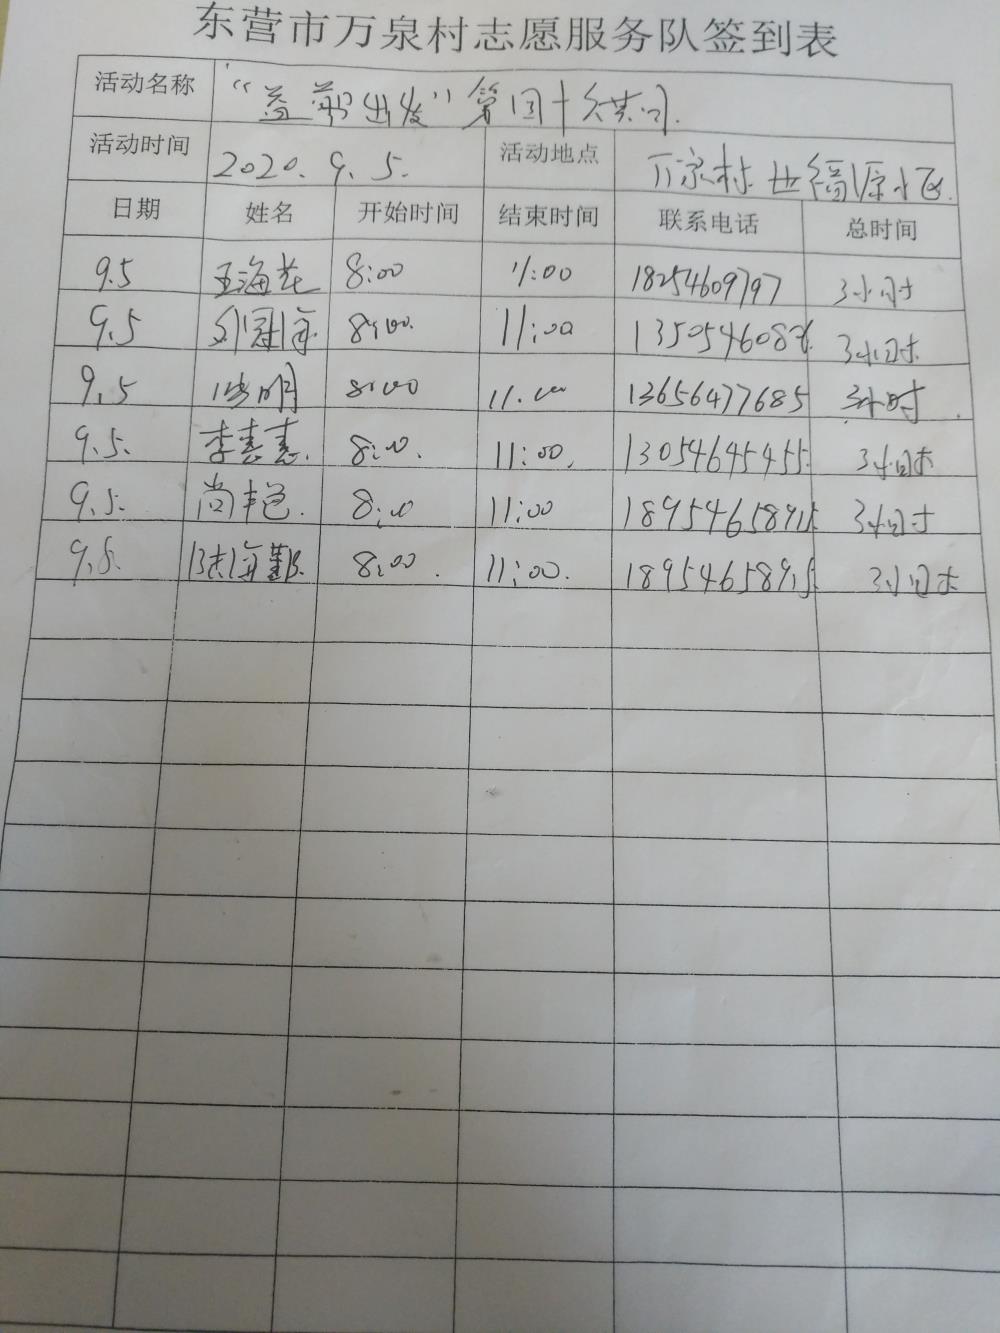 东营市万泉村志愿服务队签到表
活动名称 “益 出发” 第四十次
活动时间 2020.9.5. 活动地点 万泉村 世福源小区.
日期 姓名 开始时间 结束时间 联系电话 总时间
9.5 王海 8:00 11:00 18254609797 3小时
9.5 8:00. 11:00 3小时
9.5 明 8:00 11:00 13656477685 3小时.
9.5. 李 8:00. 11:00. 13054645455. 3小时
9.5. 尚艳. 8:00 11:00 3小时
陈海 8:00. 11:00. 18954658915. 3小时